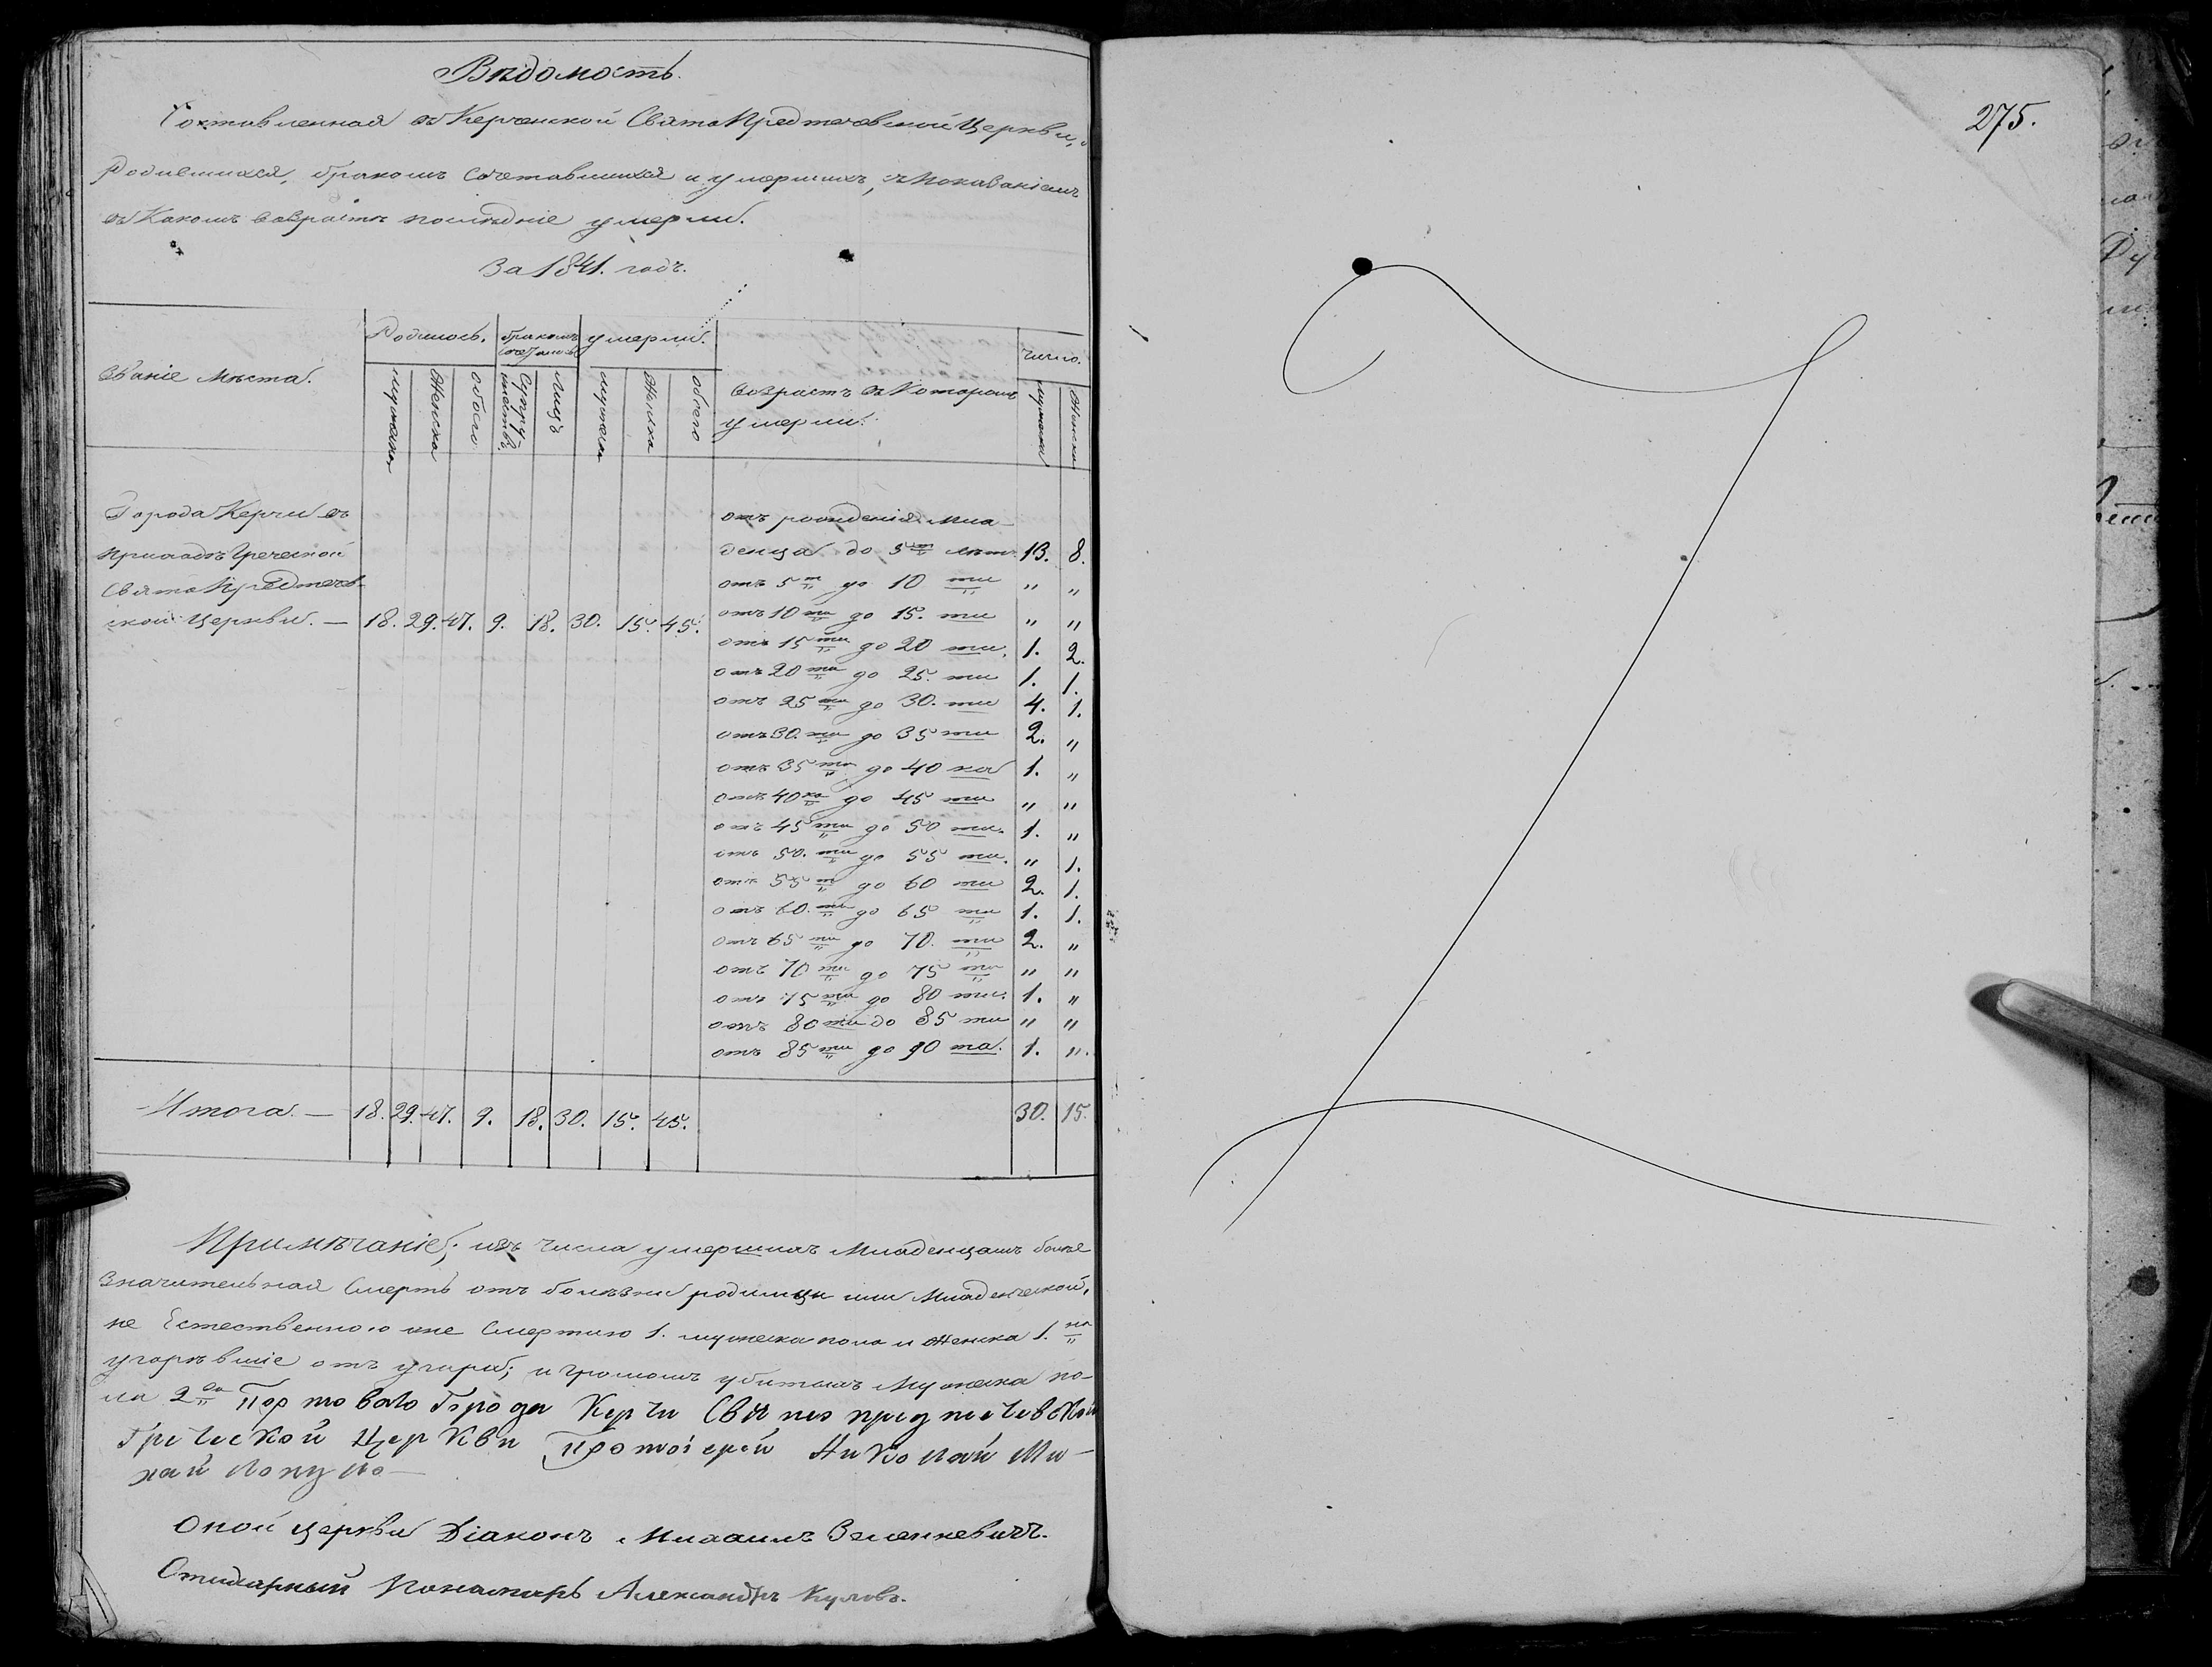 Вѣдомость.
Составленная въ Керченской СвятоПредтечевской Церкви, о
Родившихся, бракомъ Сочетавшихся и умершихъ, съ Показаніемъ
въ Какомъ возрастѣ послѣдніе умерли.
За 1841. годъ.
Званіе Мѣста.
Родилось. бракомъ сочетались умерли. число.
Мужеска Женска обоего Супружествъ. Лицъ мужеска Женска обоего
возрастъ въ Которомъ умерли.
мужеска Женска
Города Керчи въ
приходѣ Греческой
СвятоПредтечев-
ской Церкви. — 18. 29. 47. 9. 18. 30. 15. 45.
отъ рожденія Мла-
денца до 5ти лѣтъ. 13. 8.
отъ 5ти до 10 ти " "
отъ 10ти до 15. ти " "
отъ 15ти до 20 ти. 1. 2.
отъ 20ти до 25. ти 1. 1.
отъ 25ти до 30. ти 4. 1.
отъ 30. ти до 35 ти 2. "
отъ 35ти до 40 ка 1. "
отъ 40ка до 45 ти " "
отъ 45ти до 50 ти. 1. "
отъ 50. ти до 55 ти. " 1.
отъ 55ти до 60 ти 2. 1.
отъ 60. ти до 65 ти 1. 1.
отъ 65ти до 70. ти 2. "
отъ 70ти до 75 ти " "
отъ 75ти до 80 ти. 1. "
отъ 80ти до 85 ти " "
отъ 85ти до 90 та. 1. "
Итого. — 18. 29. 47. 9. 18. 30. 15. 45. 30. 15.
Примѣчаніе; изъ числа умершихъ Младенцамъ болѣе
значительная Смерть отъ болѣзни родимцы или Младенческой,
не Естественною же Смертію 1. мужеска пола и женска 1. на
угорѣвшіе отъ угара; и громомъ убитыхъ Мужеска по-
ла 2ва Портоваго Города Керчи Святопредтечевской
Греческой Церкви Протоіерей Николай Ми-
хай
Оной церкви Діаконъ Михаилъ Зеленкевичъ.
Стихарный Пономарь Александръ Куловъ.
275.